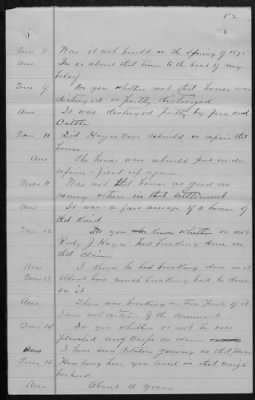 52
Ques 8 Was it not built in the Spring of 1895
Ans In or about that time to the best of my
belief
Ques 9 Do you whether that house was
destroyed or partly destroyed
Ans It was destroyed partly by fire and
Cattle
Ques 10 Did Hayes ever rebuild or repair that
house
Ans The house were rebuilt put under
repair - fixed up again
Ques 11 Was not that house as good as
many others in that settlement
Ans It was a fair average of a house of
that kind
Ques 12 Do you know whether or not
J Hayes had breaking done on
that claim
Ans I know he had breaking done on it
Ques 13 About how much breaking had he done
on it
Ans There was breaking on two parts of it
I am not certain of the amount
Ques 14 Do you whether or not he ever
planted any Crops on
Ans I have seen Potatoes growing on that place
Ques 15 How long have you lived in that neigh
borhood
Ans About 4 years